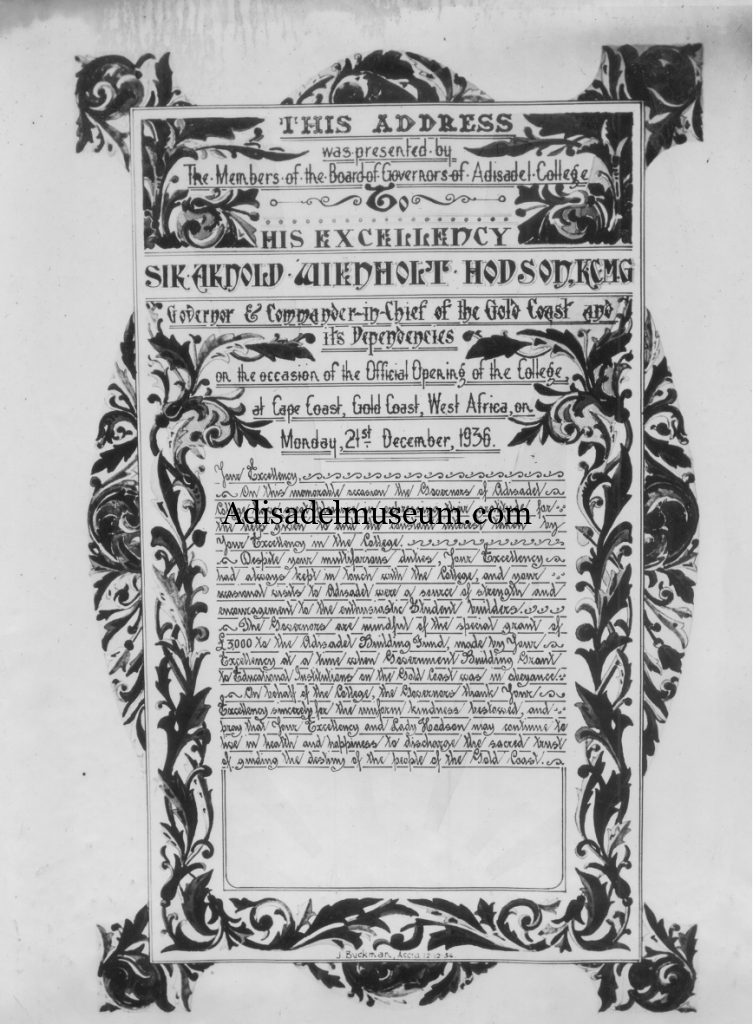 THIS ADDRESS
was presented by
The Members of the Board of Governors of Adisadel College
To
HIS EXCELLENCY
SIR ARNOLD WIENHOLT HODSON, KCMG
Governor & Commander-in-Chief of the Gold Coast and
its Dependencies
on the occasion of the Official Opening of the College
at Cape Coast, Gold Coast, West Africa, on
Monday, 21st December, 1936.
Your Excellency,
On this memorable occasion the Governors of Adisadel
Adisadelmuseum.com
for
by
Your Excellency in the College.
Despite your multifarious duties, Your Excellency
had always kept in touch with the College, and your
occasional visits to Adisadel were a source of strength and
encouragement to the enthusiastic Student builders.
The Governors are mindful of the special grant of
£3000 to the Adisadel Building Fund, made by Your
Excellency at a time when Government Building Grant
to Educational Institutions in the Gold Coast was in abeyance.
On behalf of the College, the Governors thank Your
Excellency sincerely for the uniform kindness bestowed, and
pray that Your Excellency and Lady Hodson may continue to
live in health and happiness to discharge the sacred trust
of guiding the destiny of the people of the Gold Coast.
J. Buckman, Accra. 12-12-36